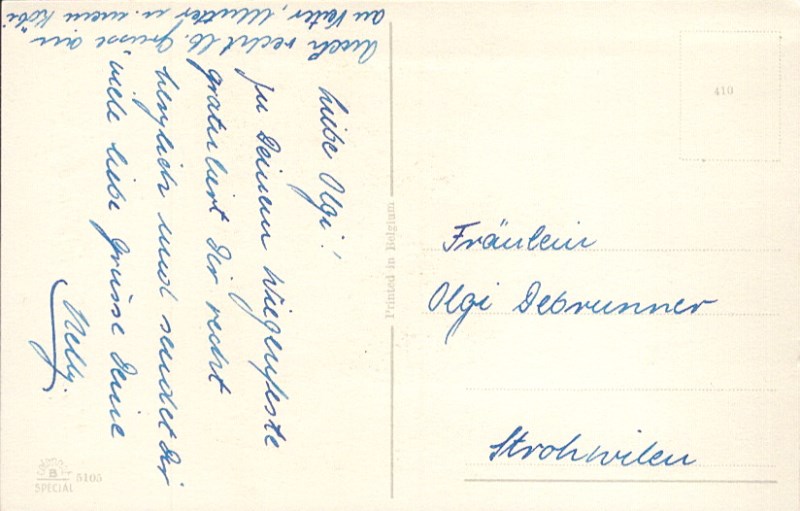 Liebe Olgi!
zu Deinem Wiegenfeste
gratuliert Dir recht
herzlich und sendet Dir
viele liebe Grüsse Deine
Nelly.
Auch recht lb. Grüsse an
au Vater, Mutter u. mein Köbi
Printed in Belgium
410
Fräulein
Olgi Debrunner
Strohwilen
B
SPECIAL
5105